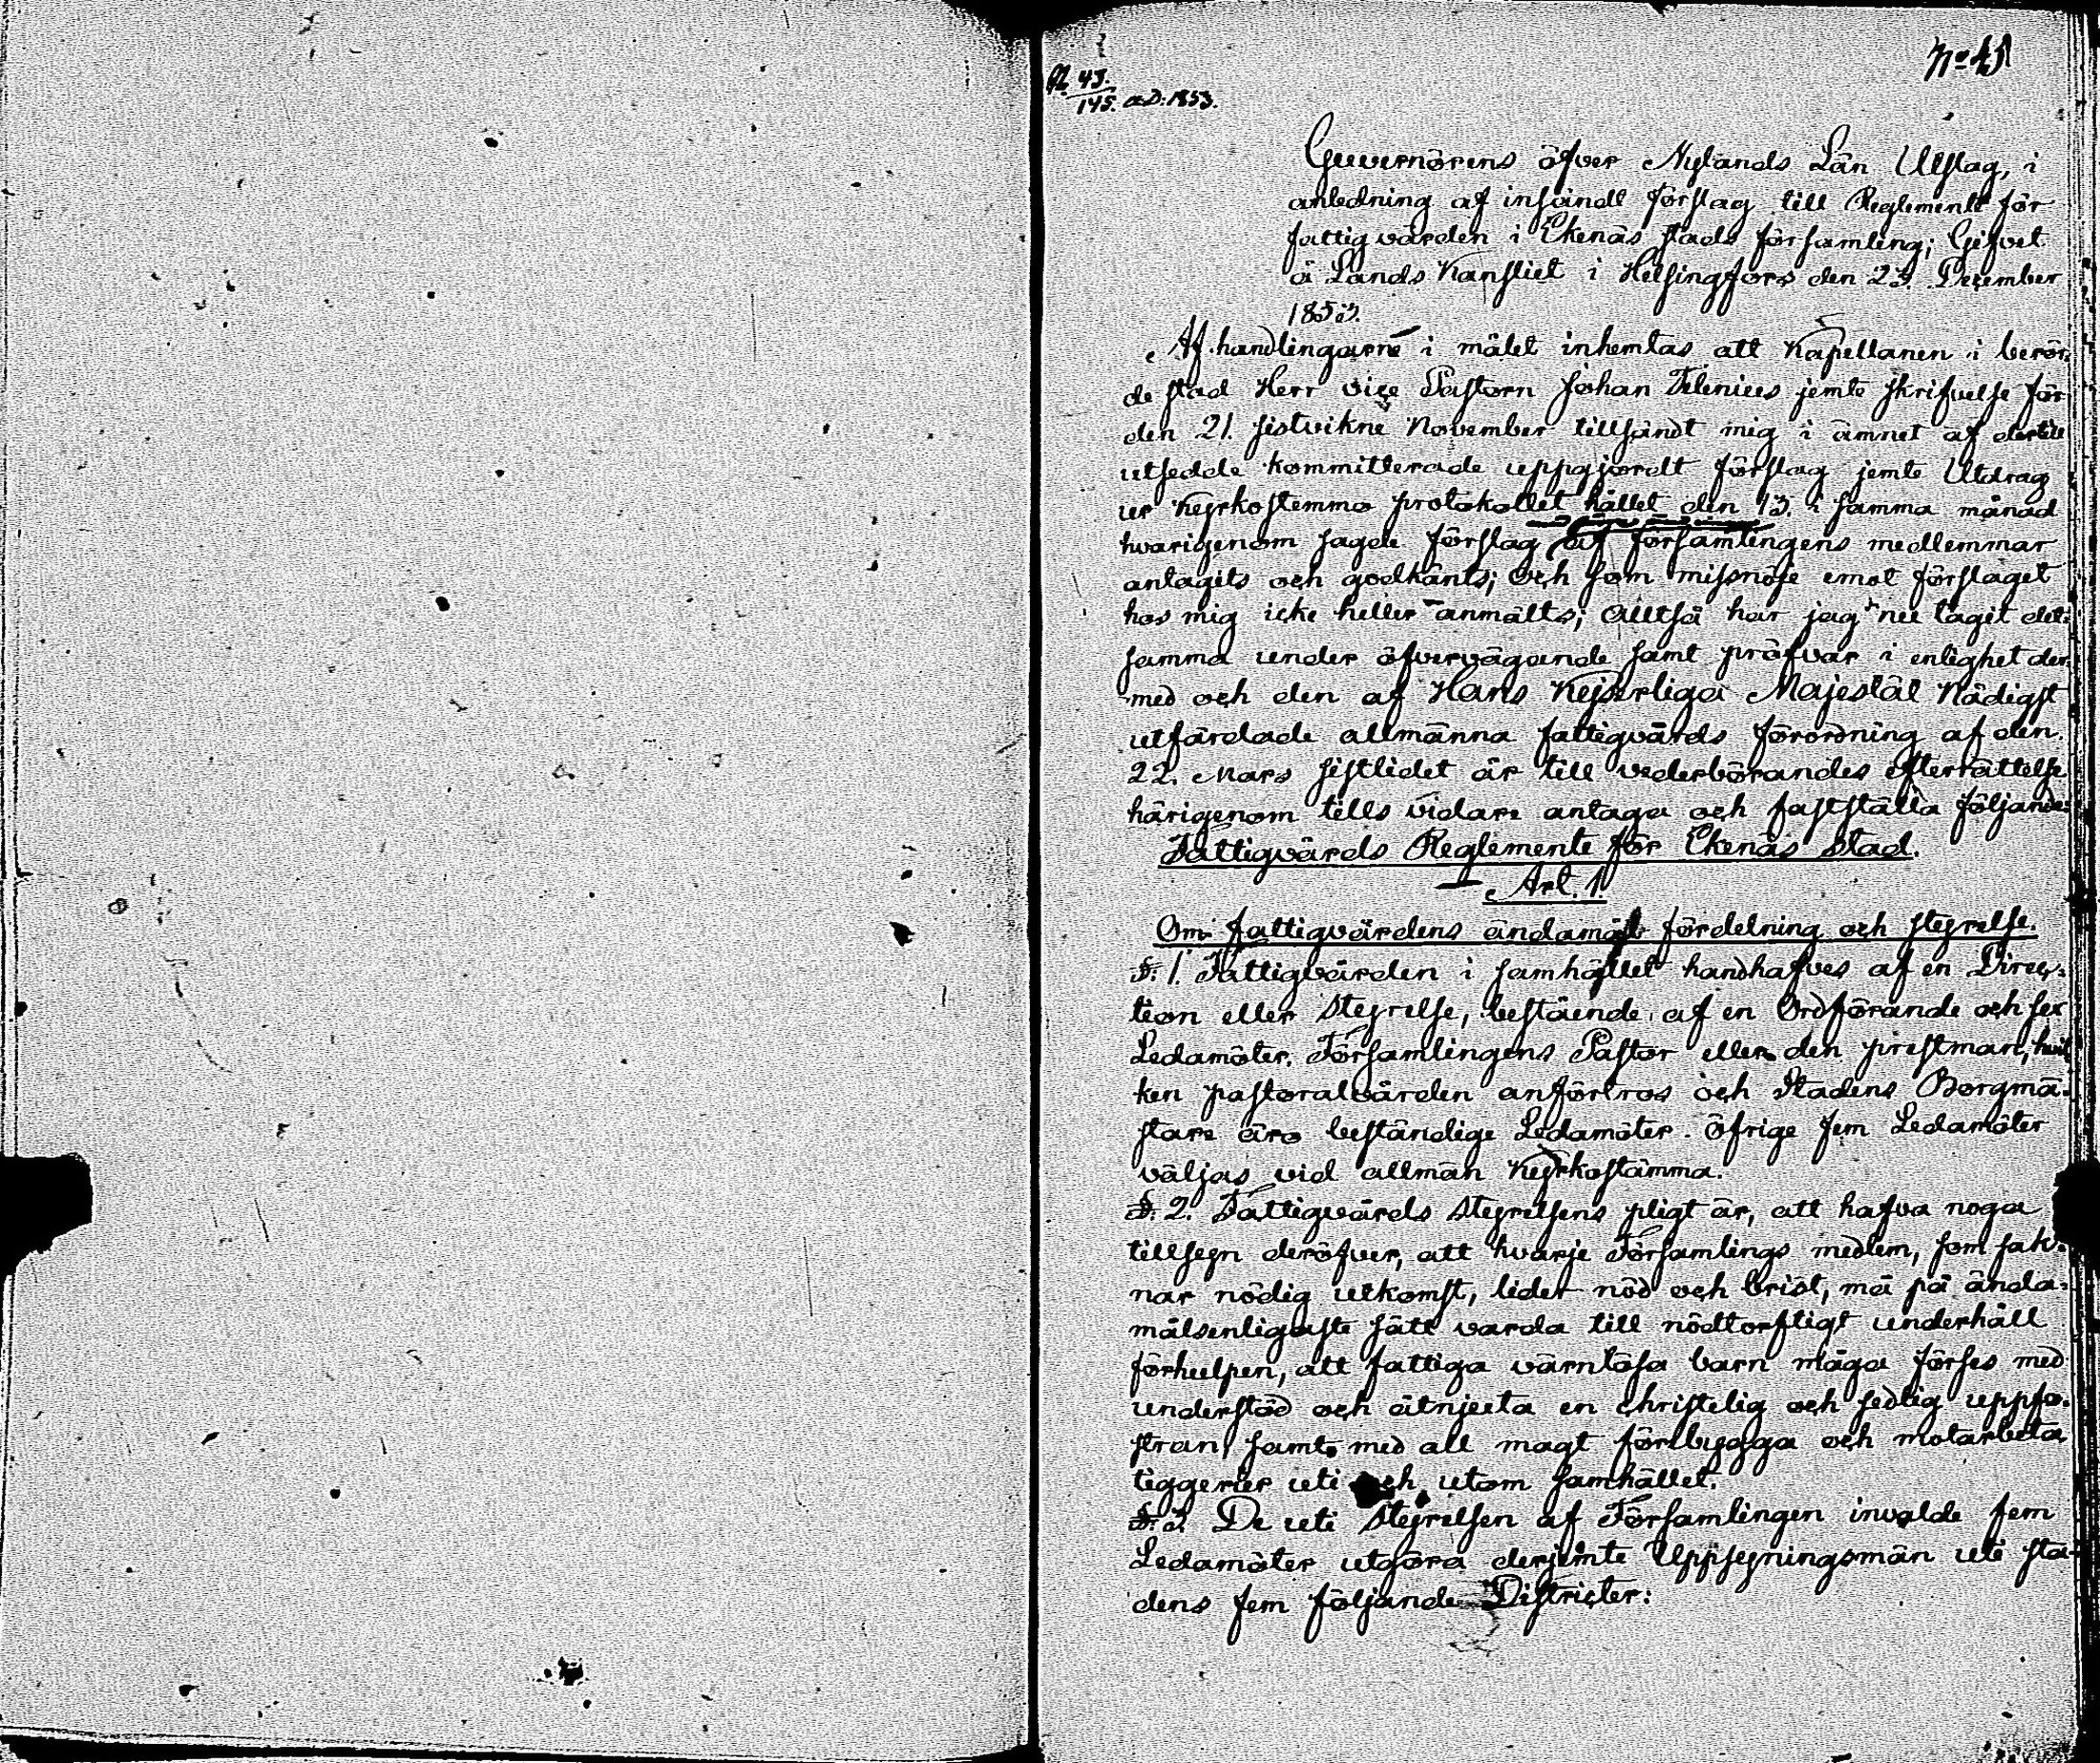 43.
145. a.D: 1853.
Guvernörens öfver Nylands Län Utslag, i
anledning af insändt förslag till Reglemente för
fattigvården i Ekenäs stads församling; Gifvet
å Lands Kansliet i Helsingfors den 23. December
1853.
Af handlingarne i målet inhemtas att Kapellanen i berör-
de stad Herr vice Pastorn Johan Telenius jemte skrifvelse för
den 21. sistvikne November tillsändt mig i ämnet af dertill
utsedde kommitterade uppgjordt förslag jemte Utdrag
ur Kyrkostemmo protokollet hållet den 13. i samma månad
hvarigenom sagde förslag af församlingens medlemmar
antagits och godkänts; och som missnöje emot förslaget
hos mig icke heller anmälts; Alltså har jag nu tagit det-
samma under öfvervägande samt pröfvar i enlighet der-
med och den af Hans Kejserliga Majestät Nådigst
utfärdade allmänna fattigvårds förordning af den
22. Mars sistlidet år till vederbörandes efterrättelse
härigenom tills vidare antaga och fastställa följande
Fattigvårds Reglemente för Ekenäs Stad.
Art. 1.
Om fattigvårdens ändamål fördelning och styrelse.
§. 1. Fattigvården i samhället handhafves af en Direc-
tion eller Styrelse, bestående af en Ordförande och sex
Ledamöter. Församlingens Pastor eller den prestman, hvil
ken pastoralvården anförtros och Stadens Borgmä-
stare äro beständige Ledamöter. Öfrige fem Ledamöter
väljas vid allmän Kyrkostämma.
§. 2. Fattigvårds Styrelsens pligt är, att hafva noga
tillsyn deröfver, att hvarje Församlings medlem, som sak-
nar nödig utkomst, lider nöd och brist, må på ända-
målsenligaste sätt varda till nödtorftigt underhåll
förhulpen, att fattiga värnlösa barn måga förses med
understöd och åtnjuta en christelig och sedlig uppfo-
stran, samt med all magt förebygga och motarbeta
tiggerier uti och utom samhället.
§. 3. De uti Styrelsen af Församlingen invalde fem
Ledamöter utgöra derjemte Uppsyningsmän uti sta-
dens fem följande Districter: